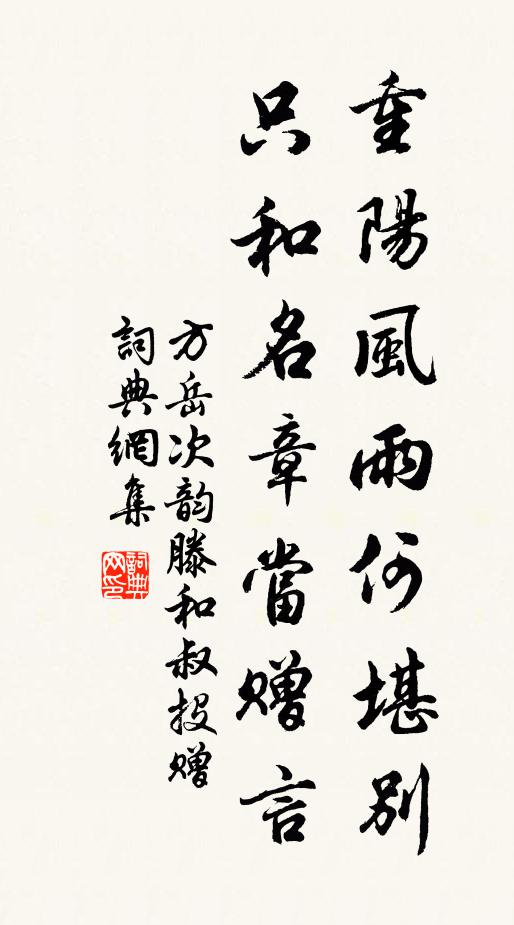 重陽風雨何堪別
只和名章當贈言
方岳次韵滕和叔投贈
詞典網集
詞典網印